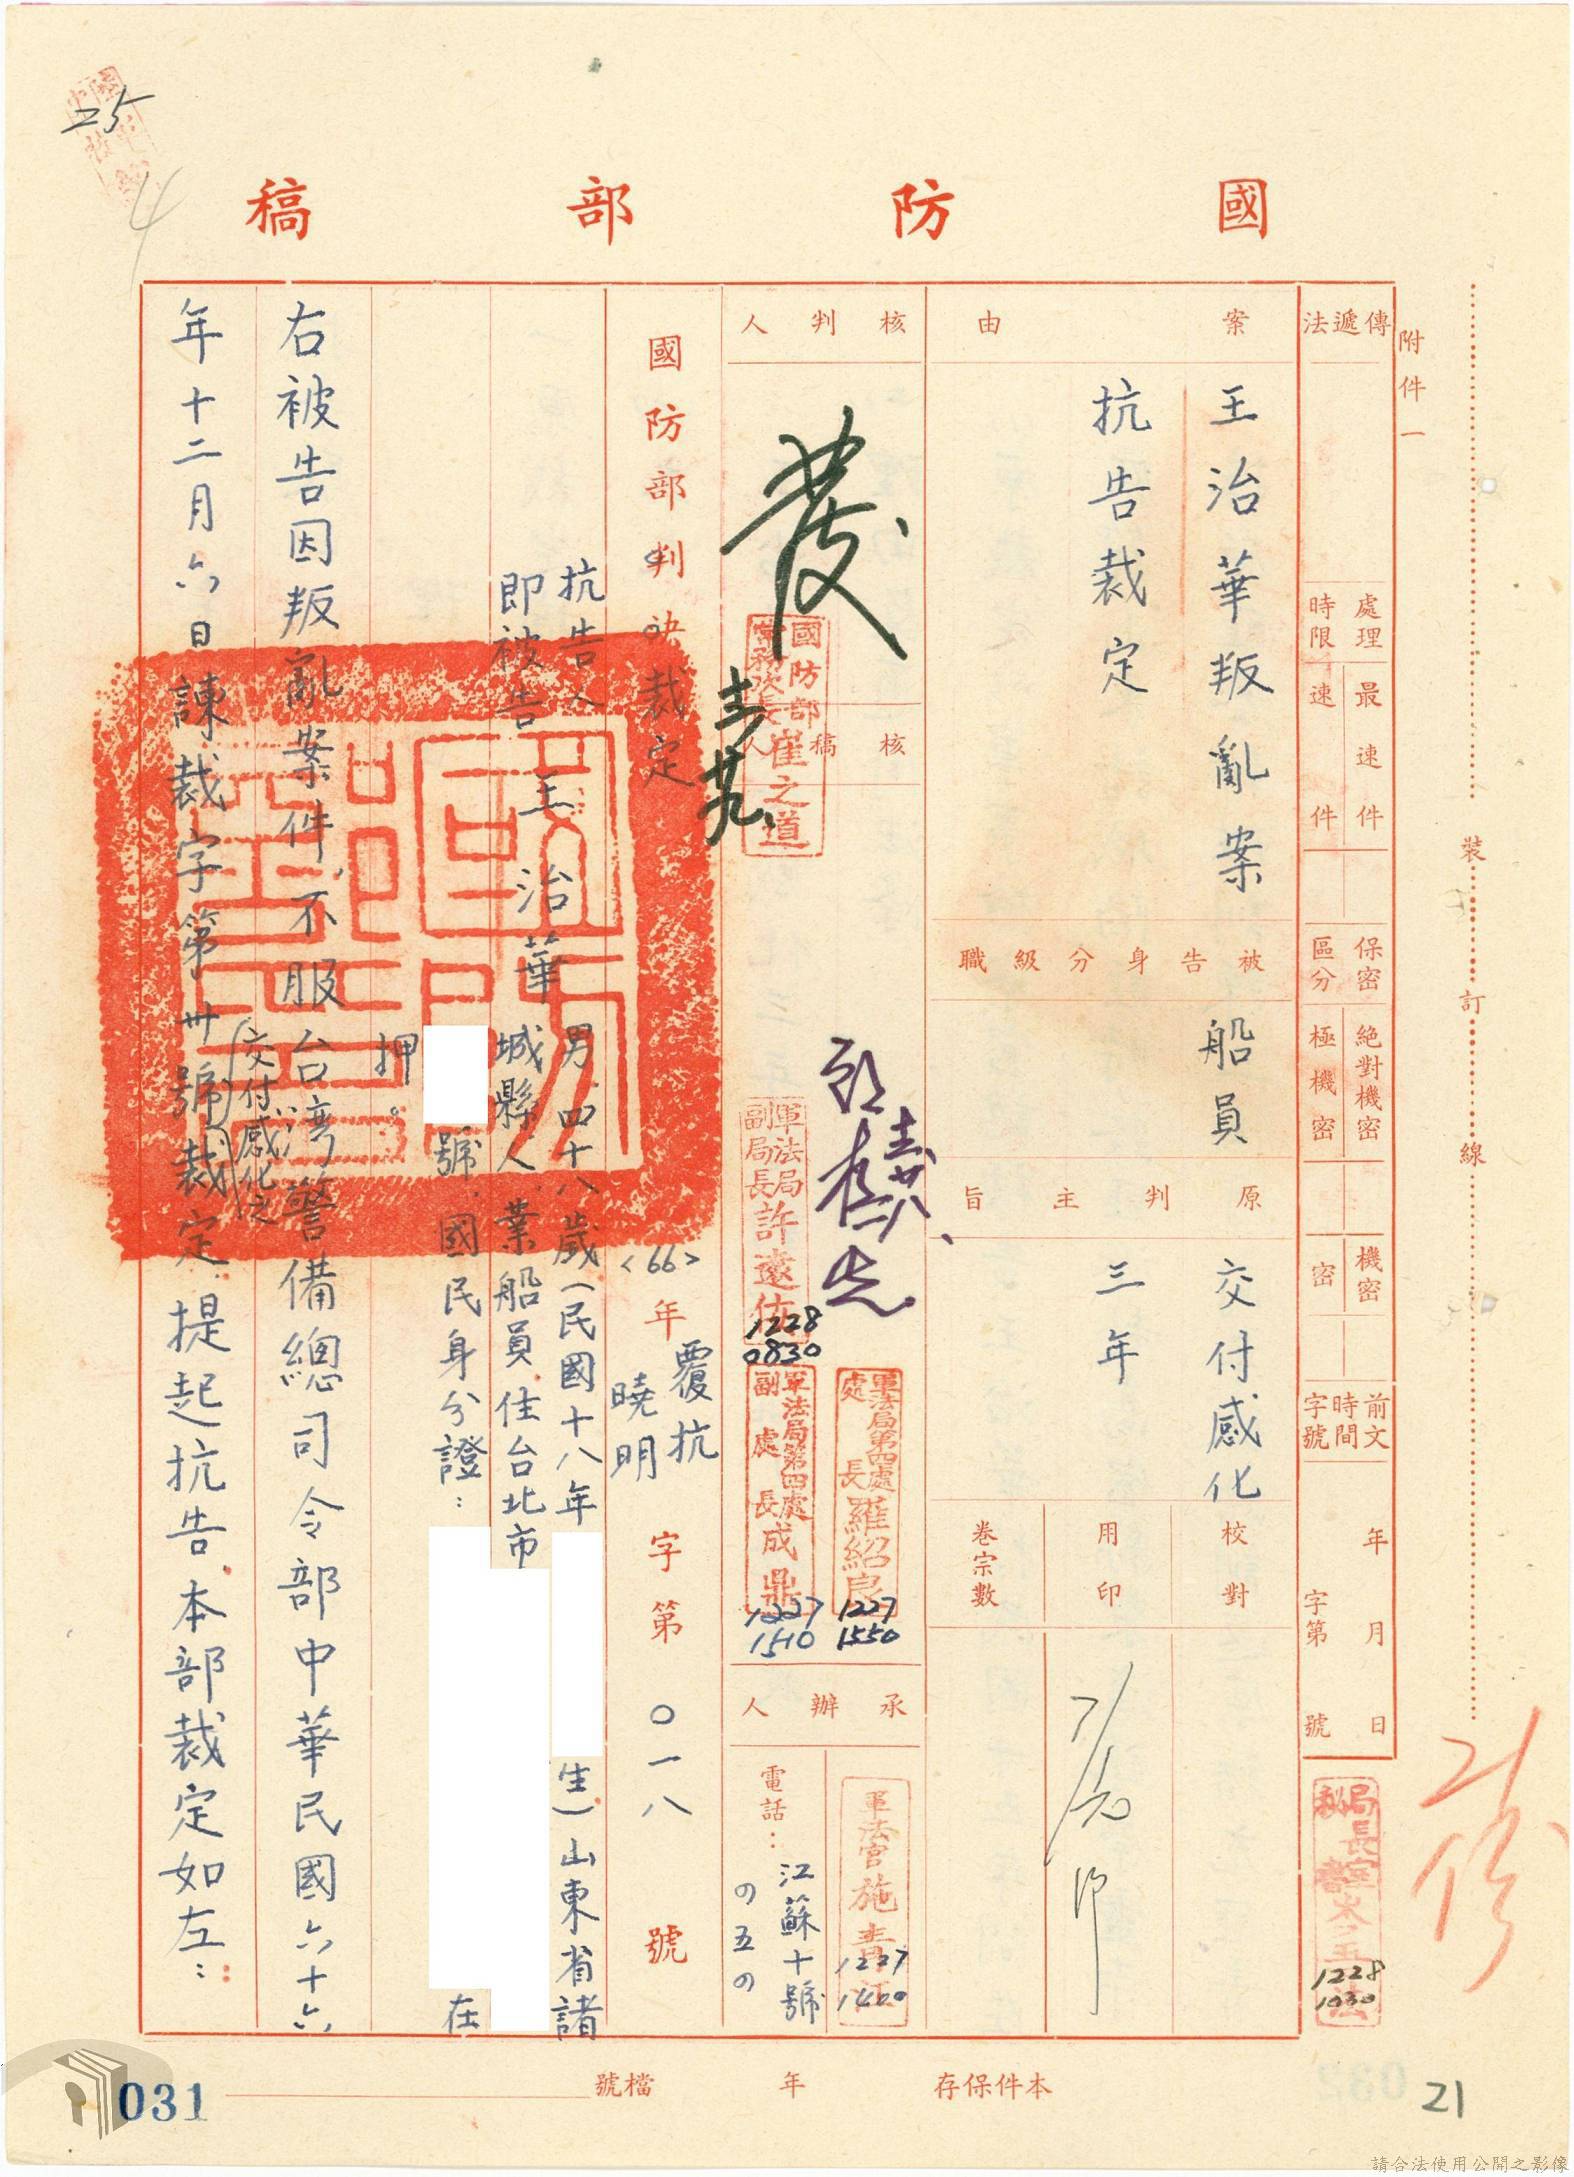 國防部稿
附件一
裝訂線
傳遞法
處理時限
最速件
速件
保密區分
絕對機密
極機密
機密
密
前文時間字號
年月日
字第號
案由
王治華叛亂案
抗告裁定
被告身分級職
船員
原判主旨
交付感化
三年
校對
用印
卷宗數
核判人
發
國防部常務次長崔之道
核稿人
軍法局副局長許遠佑
1228
0830
軍法局第四處處長羅紹良
1227
1550
軍法局第四處副處長成鼎
1227
1510
承辦人
軍法官施青江
1227
1400
電話：
江蘇十號
局長室秘書岑玉法
1228
1030
國防部判決裁定
<66>年
覆抗
曉明
字第〇一八號
抗告人
即被告
王治華
男、四十八歲(民國十八年
生)山東省諸
城縣人、業船員、住台北市
號、國民身分證：
在
押。
右被告因叛亂案件，不服台灣警備總司令部中華民國六十六
年十二月六日諫裁字第卅號
交付感化之
裁定，提起抗告，本部裁定如左：
本件保存
年
檔號
031
21
25
4
請合法使用公開之影像